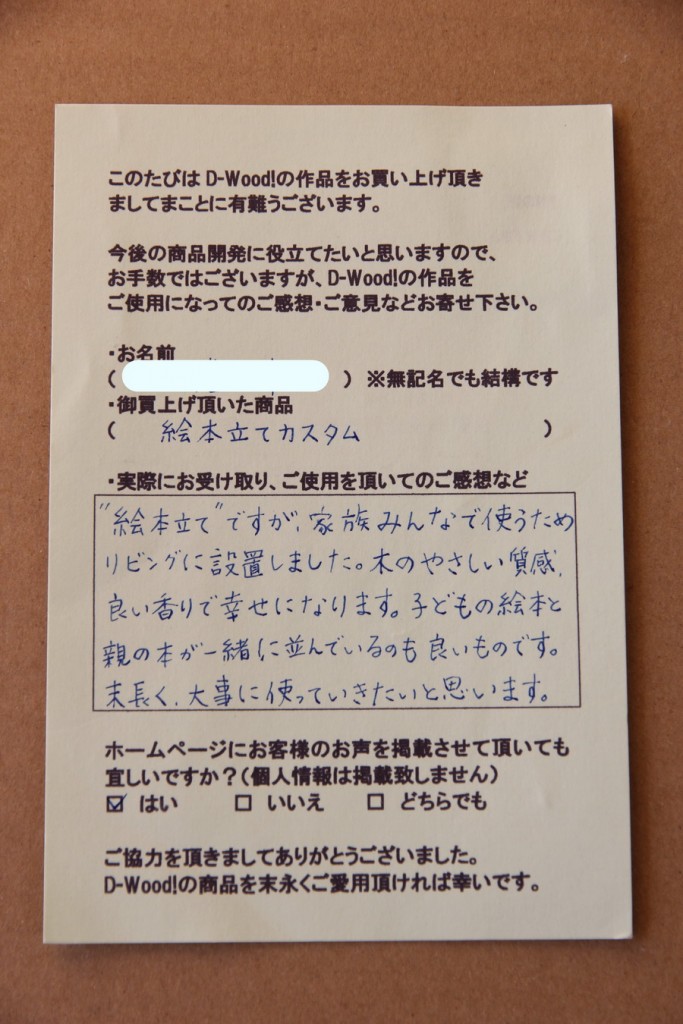 このたびは D-Wood!の作品をお買い上げ頂き
ましてまことに有難うございます。
今後の商品開発に役立てたいと思いますので、
お手数ではございますが、D-Wood!の作品を
ご使用になってのご感想・ご意見などお寄せ下さい。
・お名前
( ) ※無記名でも結構です
・御買上げ頂いた商品
( 絵本立てカスタム )
・実際にお受け取り、ご使用を頂いてのご感想など
"絵本立て"ですが、家族みんなで使うため
リビングに設置しました。木のやさしい質感、
良い香りで幸せになります。子どもの絵本と
親の本が一緒に並んでいるのも良いものです。
末長く、大事に使っていきたいと思います。
ホームページにお客様のお声を掲載させて頂いても
宜しいですか?(個人情報は掲載致しません)
☑ はい □ いいえ □ どちらでも
ご協力を頂きましてありがとうございました。
D-Wood!の商品を末永くご愛用頂ければ幸いです。